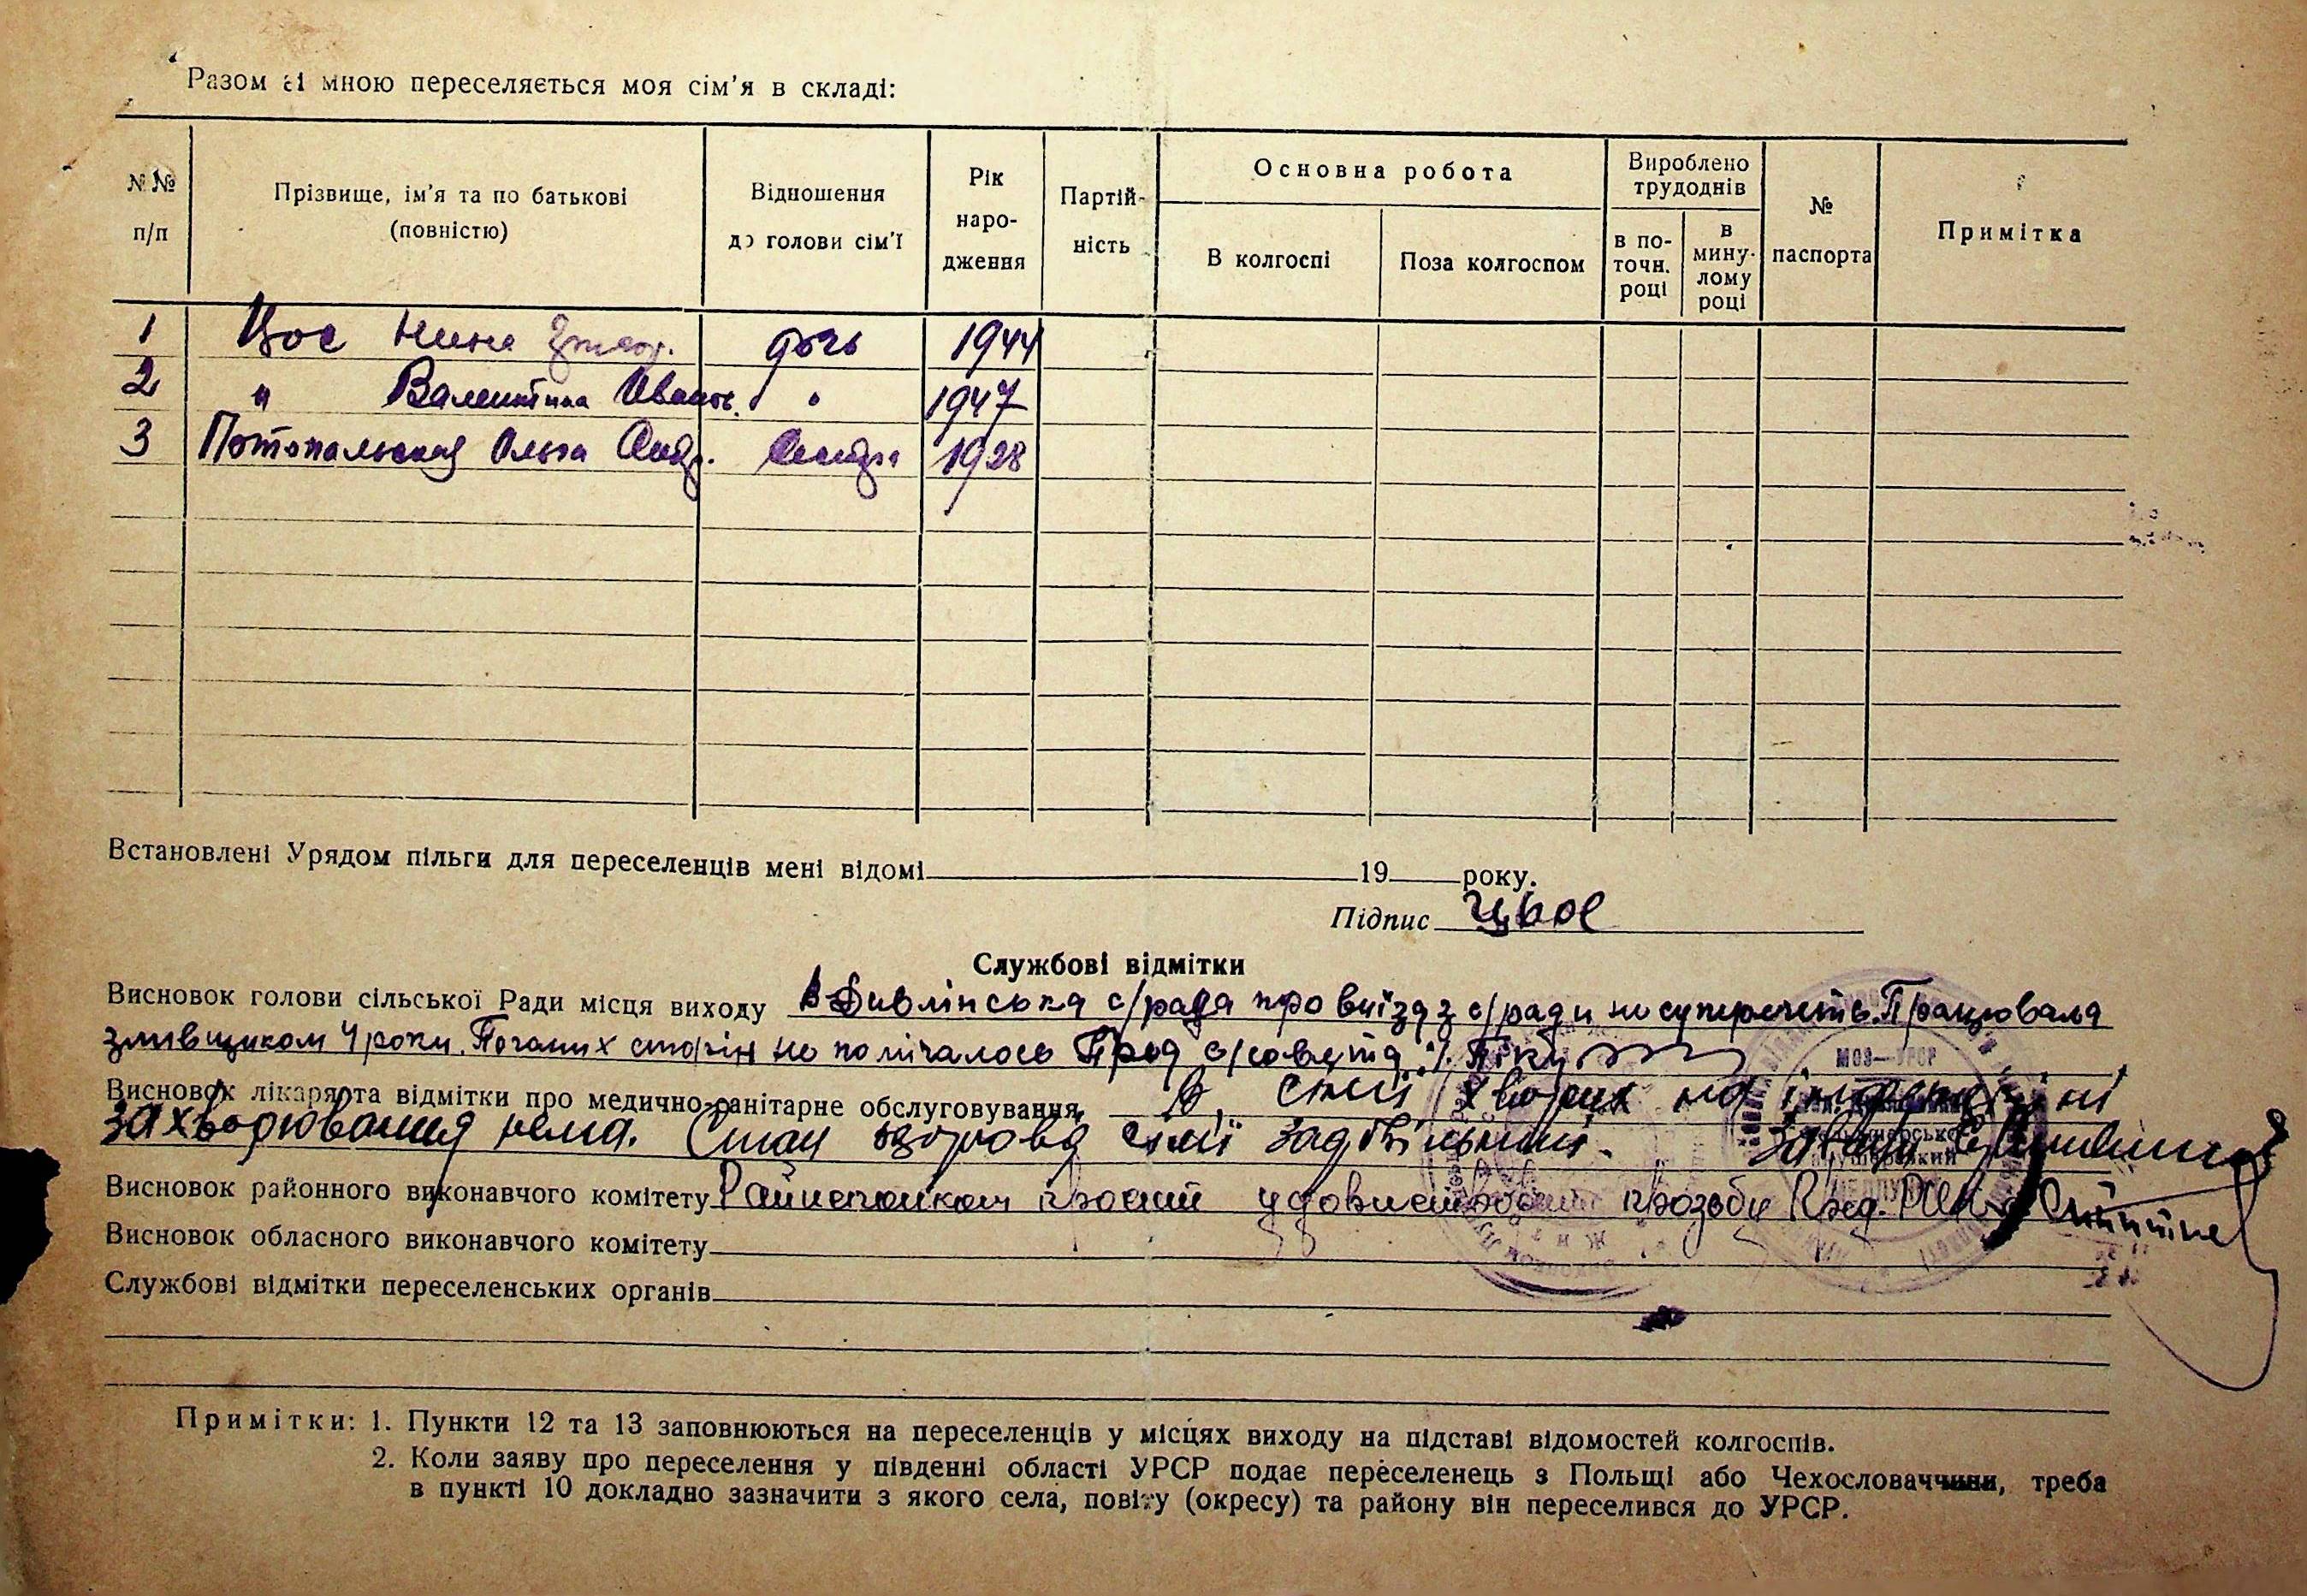 Разом зі мною переселяється моя сім'я в складі:
№№ п/п
Прізвище, ім'я та по батькові (повністю)
Відношення до голови сім'ї
Рік народження
Партій-
ність
Основна робота
В колгоспі
Поза колгоспом
Вироблено трудоднів
в по-
точн.
році
в
мину-
лому
році
№ паспорта
Примітка
1 Цвос Нина дочь 1944
2 " Валентина Иванов. " 1947
3 Потопальская Ольга Андр. Сестра 1928
Встановлені Урядом пільги для переселенців мені відомі 19 року.
Підпис Цвос
Службові відмітки
Висновок голови сільської Ради місця виходу Дивлінська с/рада про виїзд з с/ради не суперечить. Працювала
4 роки. Поганих сторін не помічалось
Висновок лікаря та відмітки про медично-санітарне обслуговування В сім'ї хворих на інфекційні
захворювання нема. Стан здоровя сімї задовільний.
Висновок районного виконавчого комітету Райисполком просит удовлетворить прозьбу Пред. РИК
Висновок обласного виконавчого комітету
Службові відмітки переселенських органів
Примітки: 1. Пункти 12 та 13 заповнюються на переселенців у місцях виходу на підставі відомостей колгоспів.
2. Коли заяву про переселення у південні області УРСР подає переселенець з Польщі або Чехословаччини, треба
в пункті 10 докладно зазначити з якого села, повіту (окресу) та району він переселився до УРСР.
МОЗ—УРСР